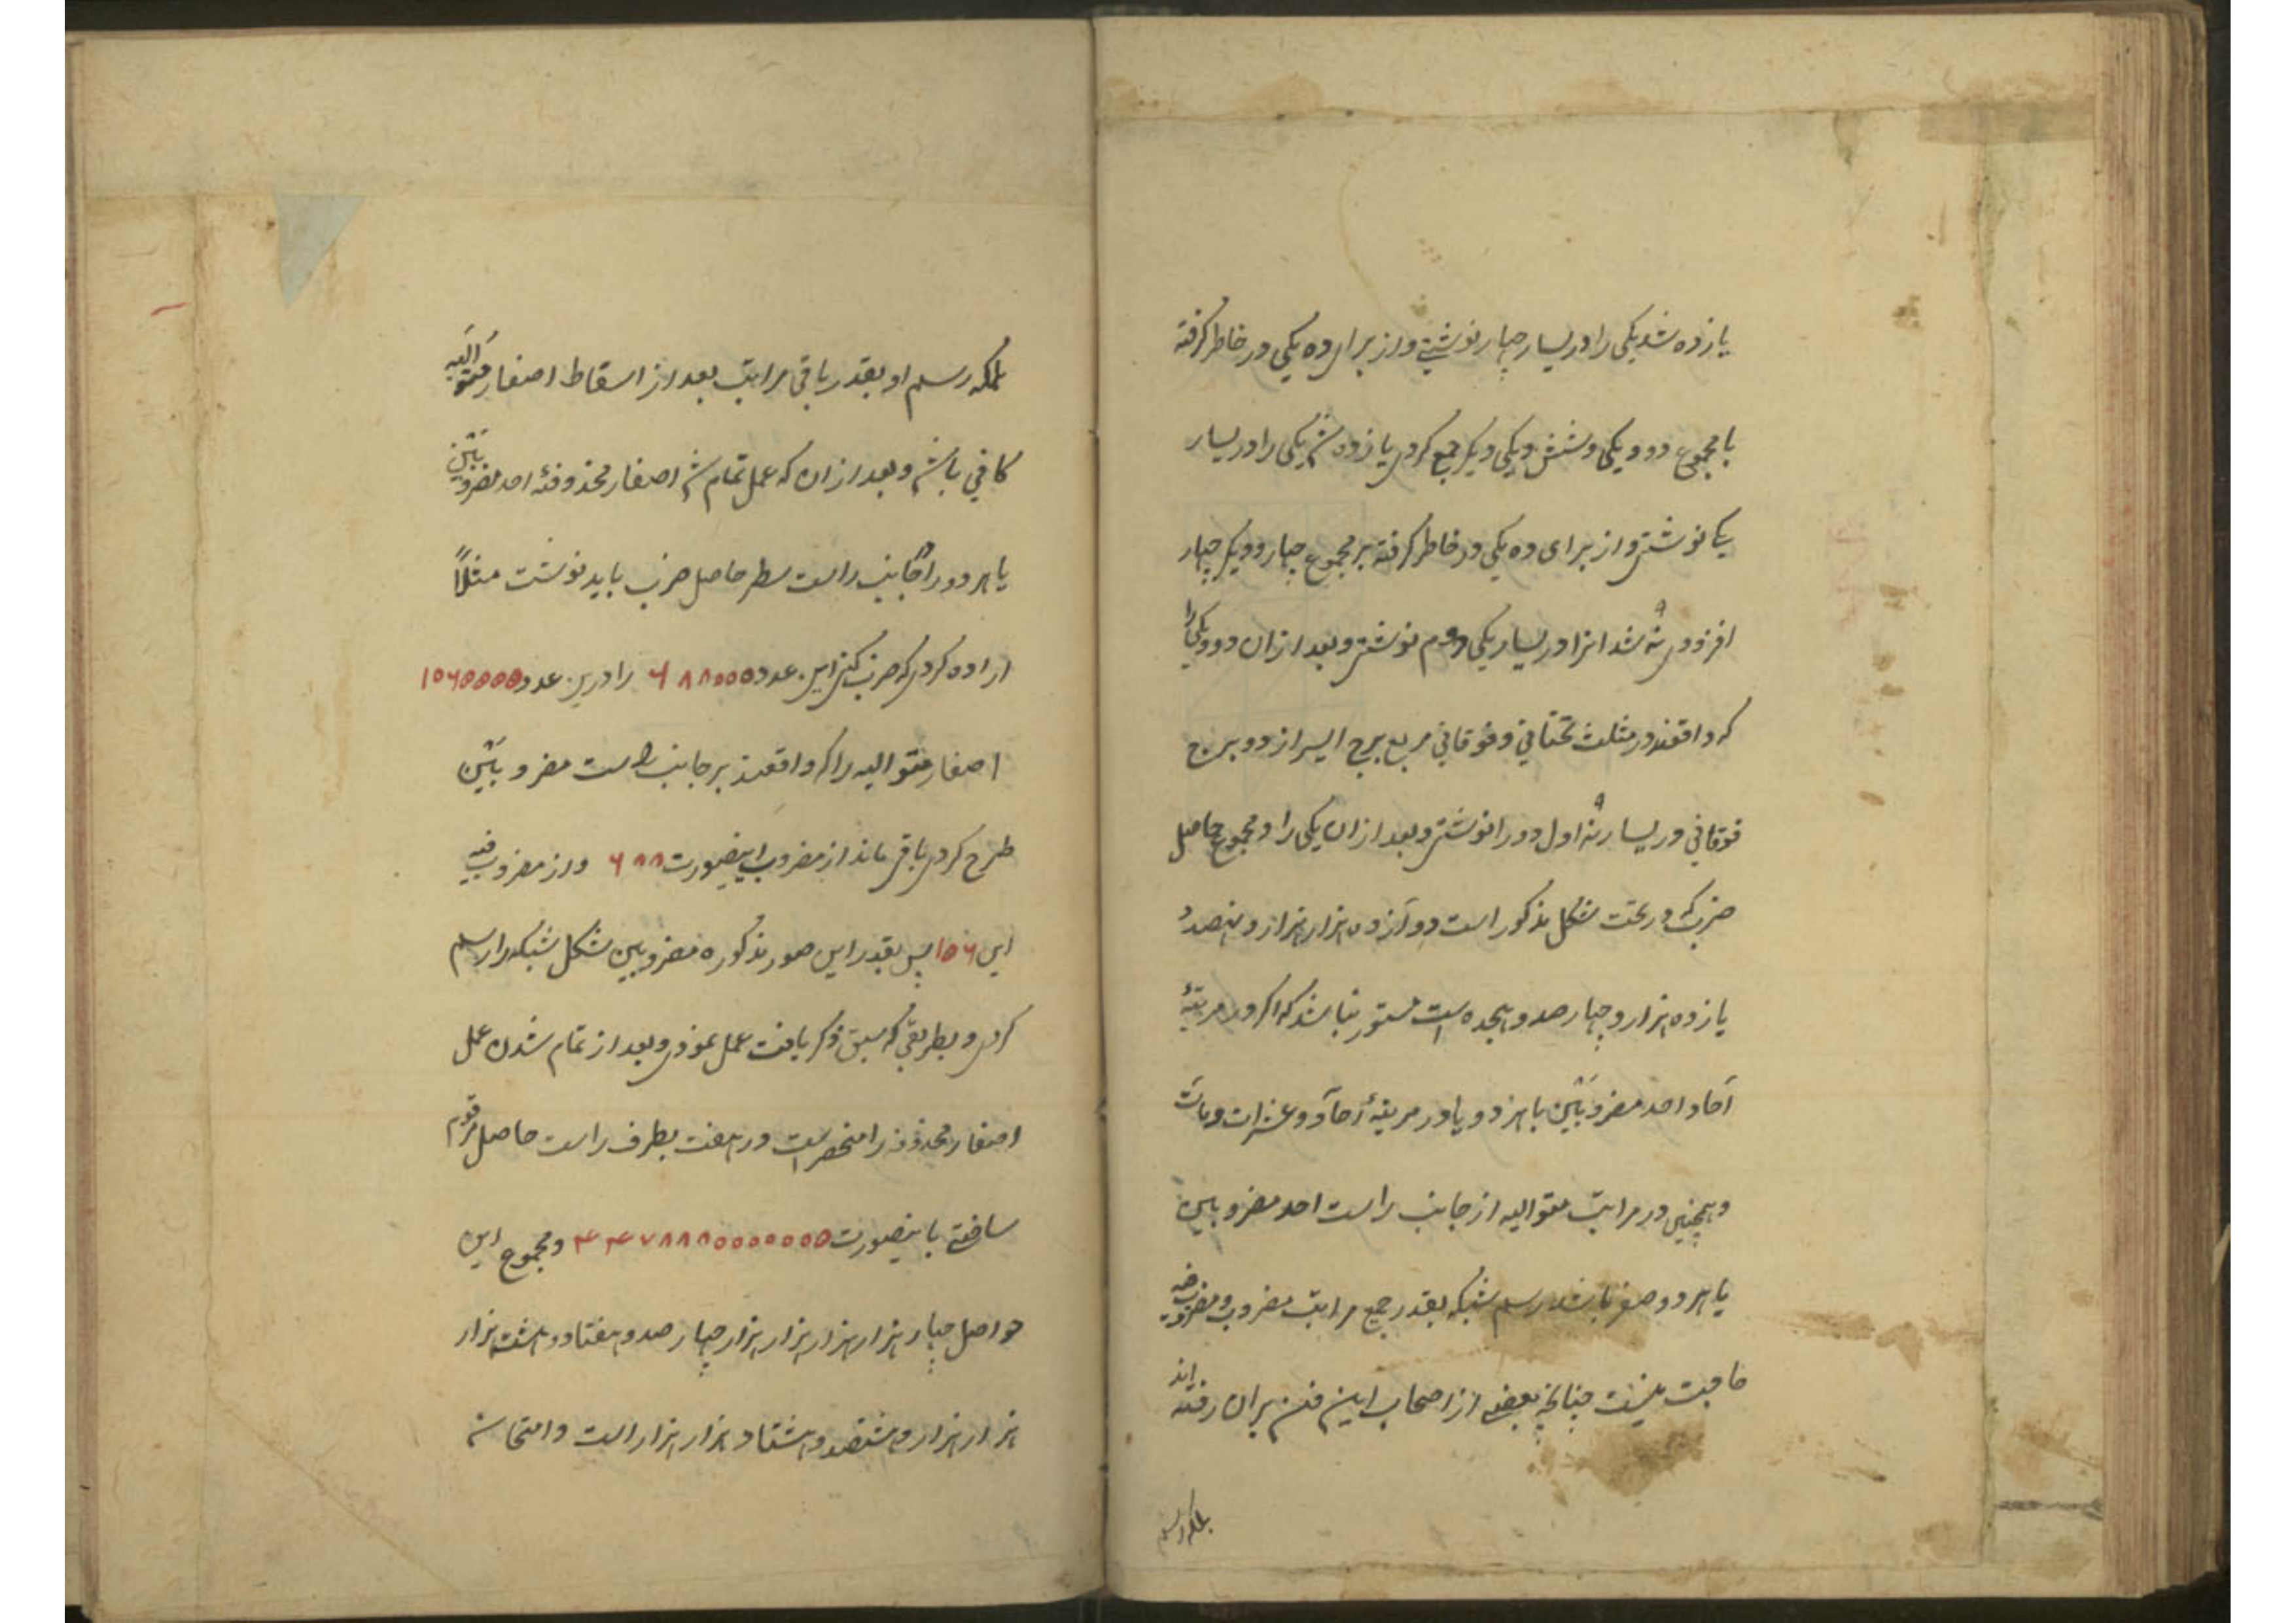 یازده شد یکی را در یسار چهار نوشتیم و از برای ده یکی در خاطر گرفته
با مجموع دو و یکی و شش و یکی دیگر جمع کردیم یازده شد یکی را در یسار
یک نوشتیم و از برای ده یکی در خاطر گرفته بر مجموع چهار و دیگر چهار
افزودیم نه شد انرا در یسار یکی دوم نوشتیم و بعد ازان دو و یکی را
که واقعند در مثلث تحتانی و فوقانی مربع برج ایسر از دو برج
فوقانی در یسار نه اول دو را نوشتیم و بعد ازان یکی را و مجموع حاصل
ضرب که در تحت شکل مذکور است دوازده هزار هزار و نهصد و
یازده هزار و چهار صد و هیجده است مستور نباشد که اگر در مرتبهٔ
آحاد احد مضروبَیْن یا هر دو یا در مرتبهٔ آحاد و عشرات و مات
و همچنین در مراتب متوالیه از جانب راست احد مضروبین
یا هر دو صفر باشد رسم شبکه بقدر جمیع مراتب مضروب و مضروب فیه
حاجت نیست چنانچه بعضی از اصحاب این فن بران رفته اند
بلکه رسم
بلکه رسم او بقدر باقی مراتب بعد از اسقاط اصفار متوالیه
کافی باشد و بعد ازان که عمل تمام شد اصفار محذوفهٔ احد مضروبَیْن
یا هر دو را بجانب راست سطر حاصل ضرب باید نوشت مثلاً
اراده کردیم که ضرب کنیم این عدد ۶۸۸۰۰۰ را درین عدد ۱۵۶۰۰۰۰
اصفار متوالیه را که واقعند بر جانب راست مضروبَیْن
طرح کردیم باقی ماند از مضروب اینصورت ۶۸۸ و از مضروب فیه
این ۱۵۶ پس بقدر این صور مذکوره مضروبین شکل شبکه را رسم
کردیم و بطریقی که سبق ذکر یافت عمل نمودیم و بعد از تمام شدن عمل
اصفار محذوفه را منحصر است در هفت بطرف راست حاصل مرقوم
ساختیم باینصورت ۴۴۷۸۸۸۰۰۰۰۰۰۰ و مجموع این
حواصل چهار هزار هزار هزار هزار چهار صد و هفتاد و هشت هزار
هزار هزار و هشتصد و هشتاد هزار هزار است و امتحانه